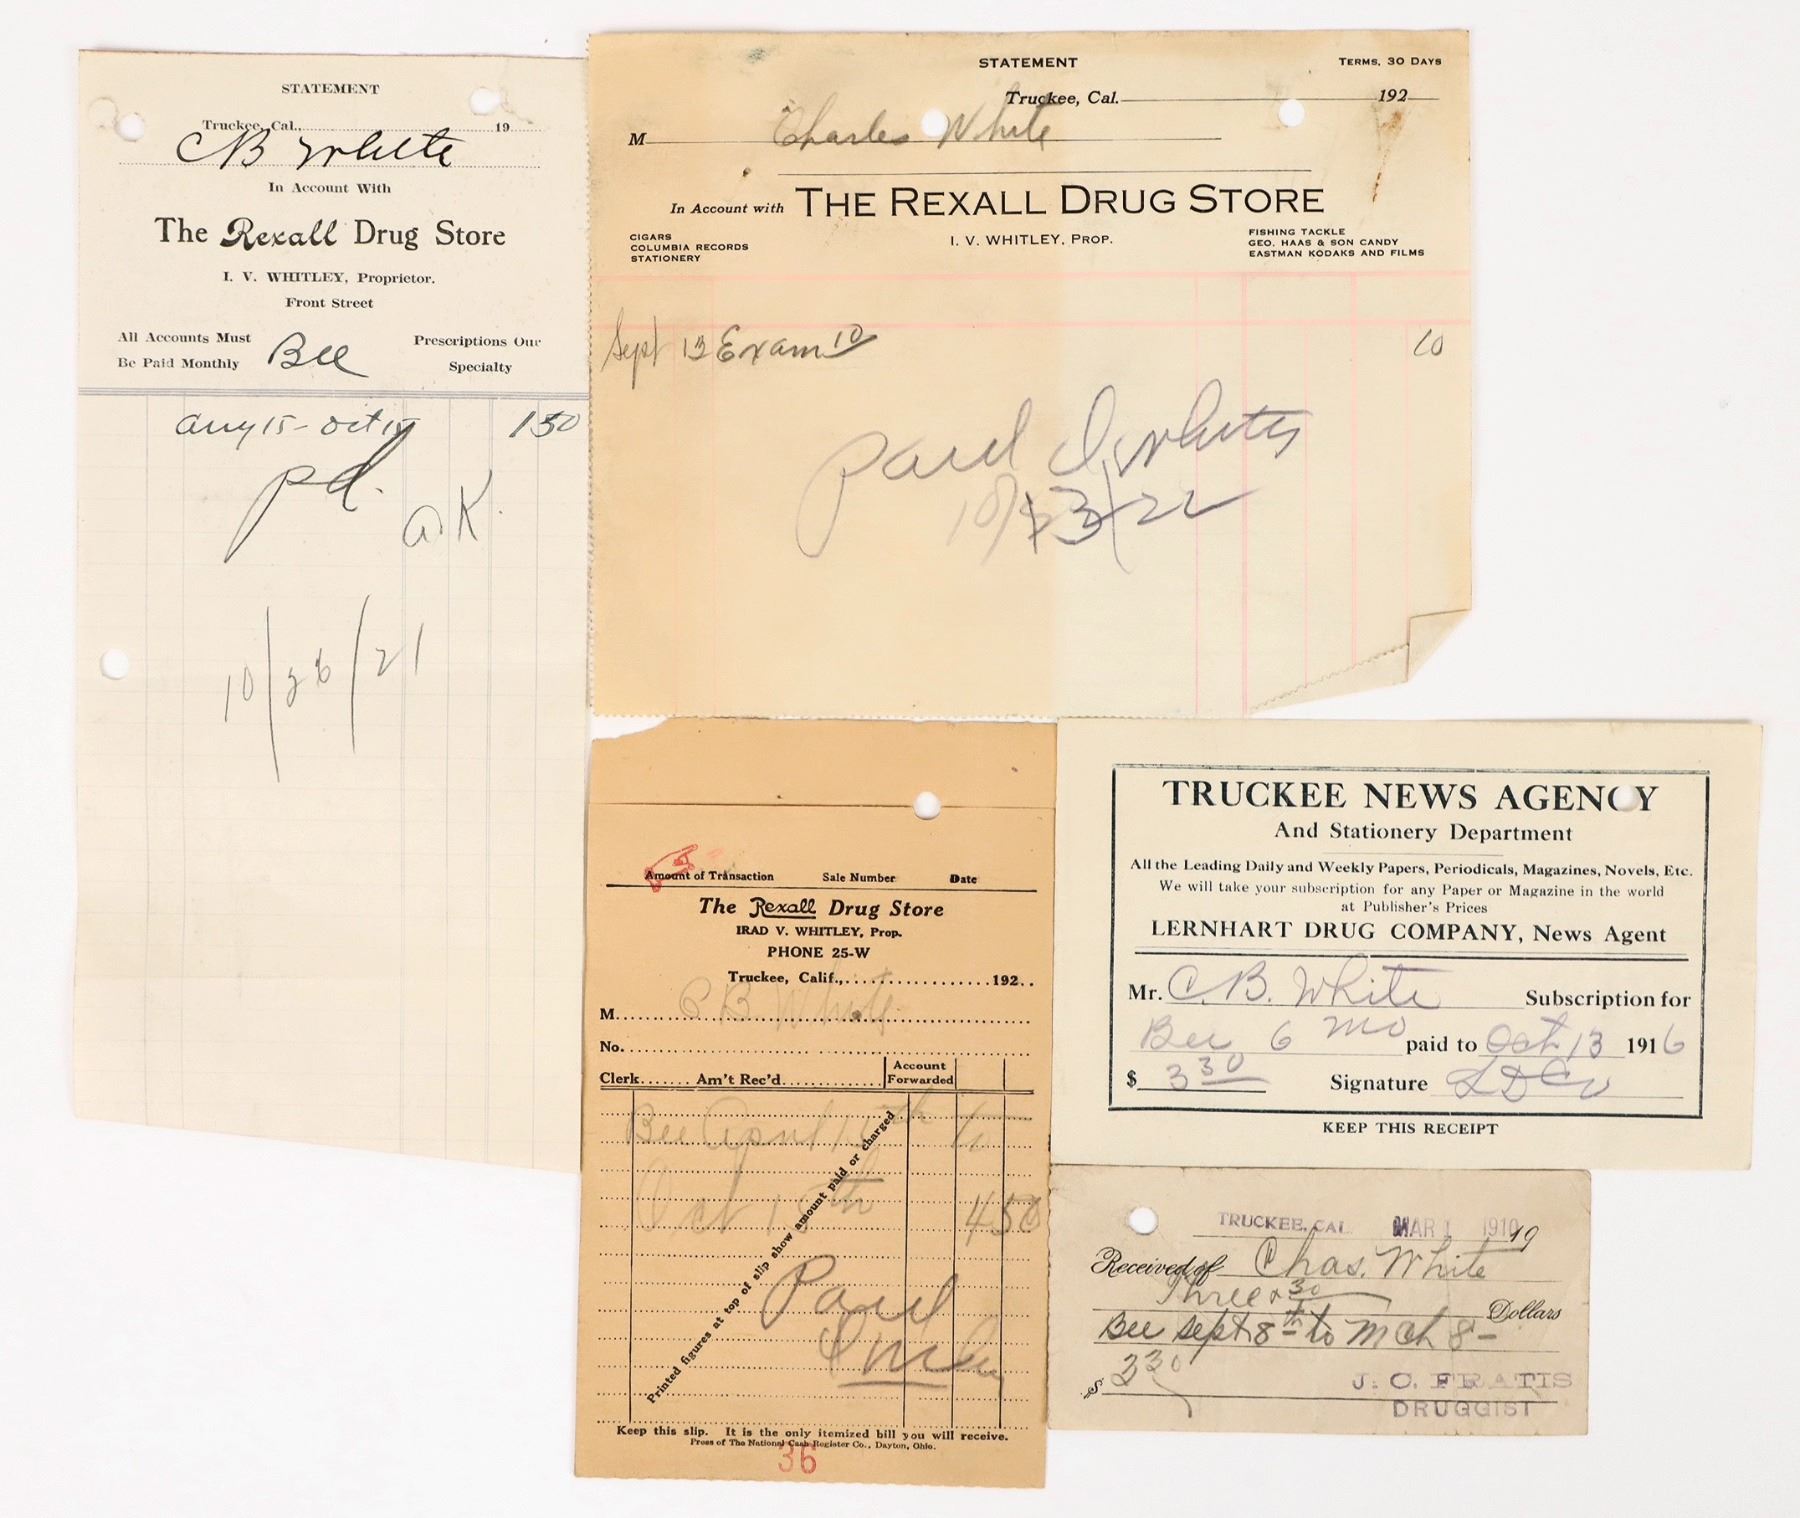 STATEMENT
Truckee, Cal. 19
CB White
In Account With
The Rexall Drug Store
I. V. WHITLEY, Proprietor.
Front Street
All Accounts Must Be Paid Monthly
Bee
Prescriptions Our Specialty
15 - Oct 15 1 50
pd.
10/26/21
STATEMENT
TERMS, 30 DAYS
Truckee, Cal. 192
M Charles White
In Account with THE REXALL DRUG STORE
I. V. WHITLEY, PROP.
CIGARS
COLUMBIA RECORDS
STATIONERY
FISHING TACKLE
GEO. HAAS & SON CANDY
EASTMAN KODAKS AND FILMS
Sept 13 Exam 10 10
Paid
Amount of Transaction Sale Number Date
The Rexall Drug Store
IRAD V. WHITLEY, Prop.
PHONE 25-W
Truckee, Calif., 192
M. C B White
No.
Clerk Am't Rec'd Account Forwarded
Bee April 15th to
Oct 15th 4 50
Printed figures at top of slip show amount paid or charged
Paid
Keep this slip. It is the only itemized bill you will receive.
Press of The National Cash Register Co., Dayton, Ohio.
36
TRUCKEE NEWS AGENCY
And Stationery Department
All the Leading Daily and Weekly Papers, Periodicals, Magazines, Novels, Etc.
We will take your subscription for any Paper or Magazine in the world
at Publisher's Prices
LERNHART DRUG COMPANY, News Agent
Mr. C. B. White Subscription for
Bee 6 mo paid to Oct 13 1916
$ 3 30 Signature L D Co
KEEP THIS RECEIPT
TRUCKEE, CAL. MAR 1 1910 19
Received of Chas. White
Three & 30 Dollars
Bee Sept 8th to Mch 8 -
$ 3 30
J. C. FRATIS
DRUGGIST